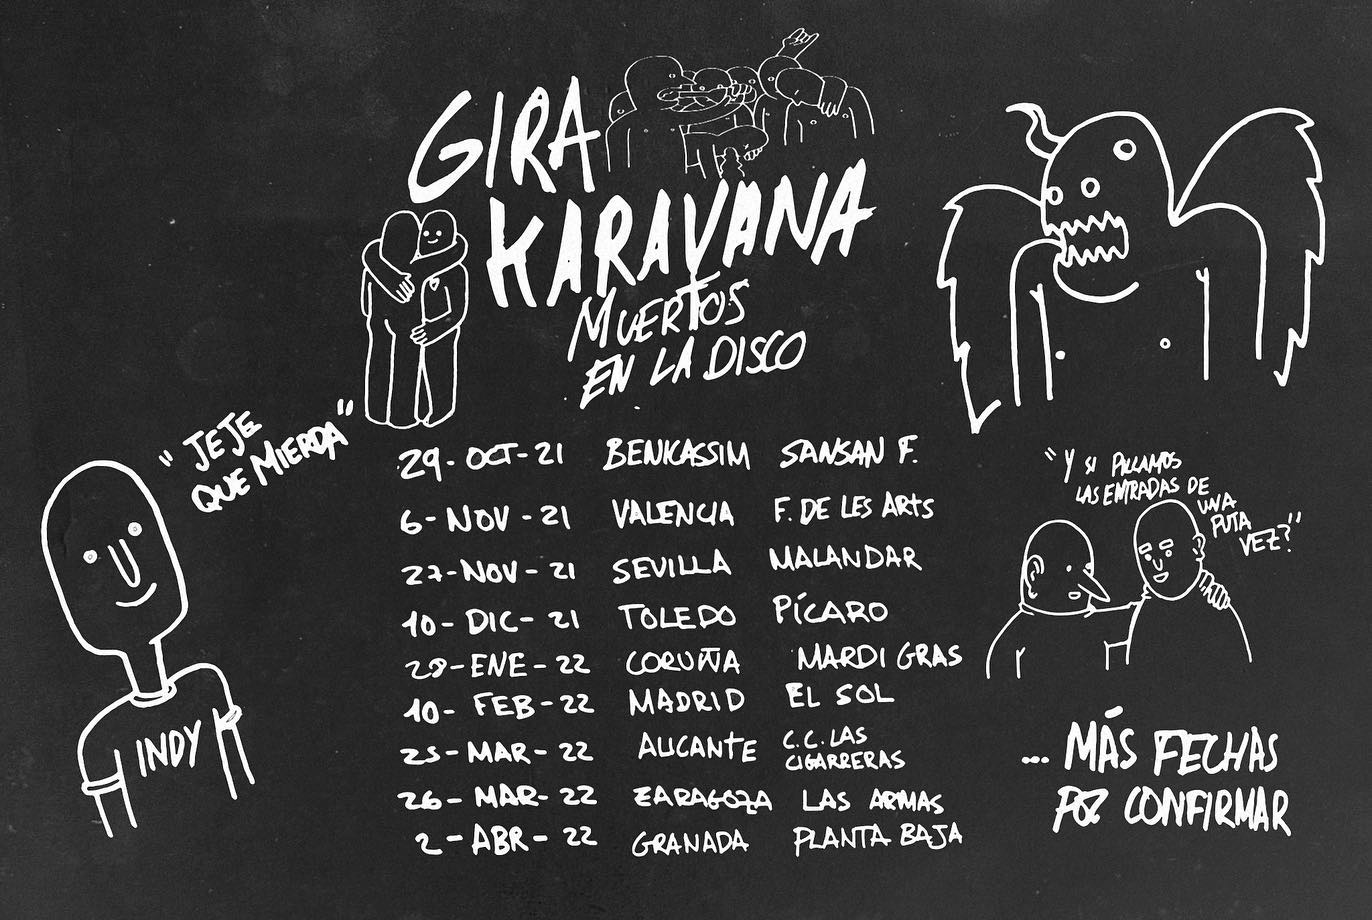 GIRA
KARAVANA
MUERTOS
EN LA DISCO
"JEJE
QUE MIERDA"
INDY
29-OCT-21 BENICASSIM SANSAN F.
6-NOV-21 VALENCIA F. DE LES ARTS
27-NOV-21 SEVILLA MALANDAR
10-DIC-21 TOLEDO PÍCARO
28-ENE-22 CORUÑA MARDI GRAS
10-FEB-22 MADRID EL SOL
25-MAR-22 ALICANTE C.C. LAS
CIGARRERAS
26-MAR-22 ZARAGOZA LAS ARMAS
2-ABR-22 GRANADA PLANTA BAJA
"Y SI PILLAMOS
LAS ENTRADAS DE
UNA
PUTA
VEZ?"
... MÁS FECHAS
POR CONFIRMAR